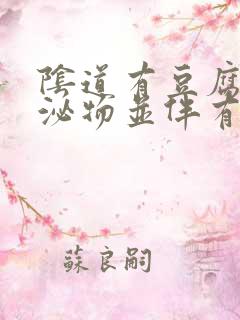 陰道有豆腐
泌物並伴有
蘇良嗣